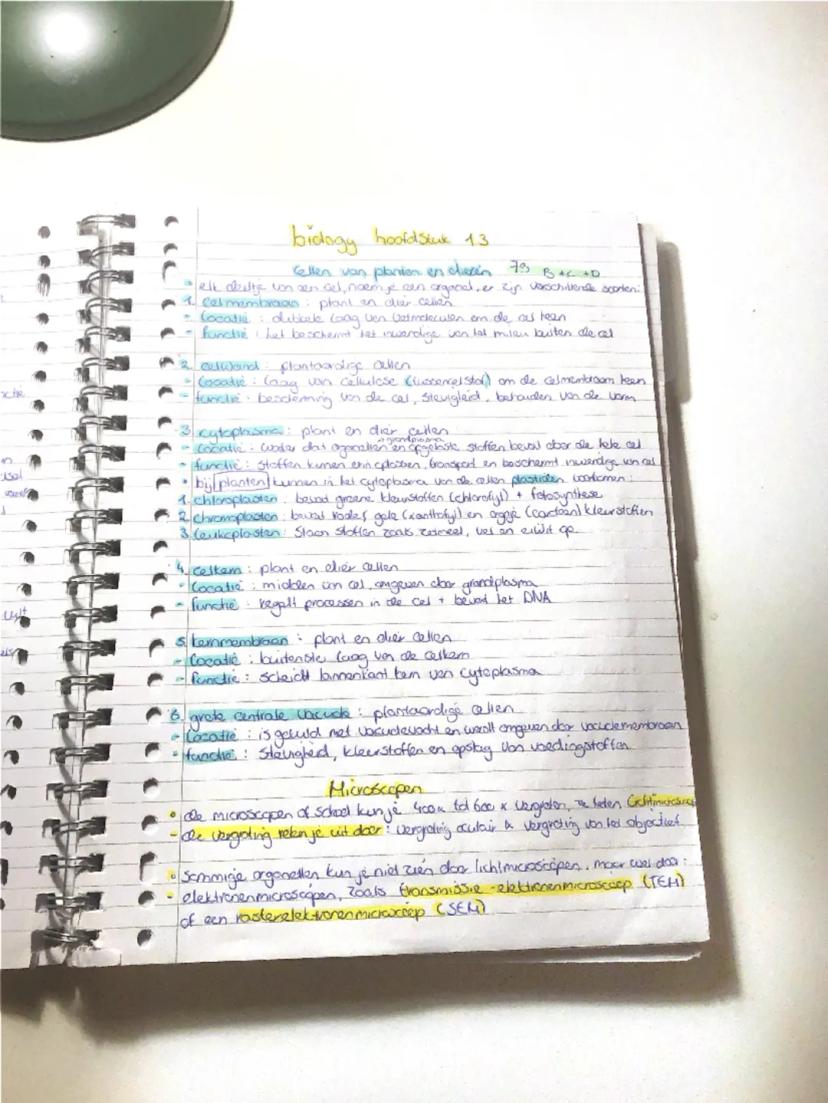 biology hoofdstuk 13
cellen van planten en dieren 79 B + C + D
- elk deeltje van een cel, noem je een organel, er zijn verschillende soorten:
1. celmembraan : plant en dier cellen
- locatie : dubbele laag van vetmoleculen om de cel heen
- functie : het beschermt het inwendige van het milieu buiten de cel
2. celwand : plantaardige cellen
- locatie : laag van cellulose (tussencelstof) om de celmembraan heen
- functie : bescherming van de cel, stevigheid, behouden van de vorm
3. cytoplasma : plant en dier cellen
+ grondplasma
- locatie : water dat organellen en opgeloste stoffen bevat door de hele cel
- functie : stoffen kunnen erin oplossen, transport en beschermt inwendige van cel
• bij planten kunnen in het cytoplasma van de cellen plastiden voorkomen :
1. chloroplasten : bevat groene kleurstoffen (chlorofyl) + fotosynthese
2. chromoplasten : bevat rode, gele (xanthofyl) en oranje (caroteen) kleurstoffen
3. leukoplasten : slaan stoffen zoals zetmeel, vet en eiwit op
4. celkern : plant en dier cellen
- locatie : midden van cel, omgeven door grondplasma
- functie : regelt processen in de cel + bevat het DNA
5. kernmembraan : plant en dier cellen
- locatie : buitenste laag van de celkern
- functie : scheidt binnenkant kern van cytoplasma
6. grote centrale vacuole : plantaardige cellen
- locatie : is gevuld met vacuolevocht en wordt omgeven door vacuolemembraan
- functie : stevigheid, kleurstoffen en opslag van voedingsstoffen
Microscopen
• de microscopen op school kun je 400x tot 600 x vergroten, ze heten lichtmicroscoop
- de vergroting reken je uit door : vergroting oculair x vergroting van het objectief
• sommige organellen kun je niet zien door lichtmicroscopen, maar wel door :
- elektronenmicroscopen, zoals transmissie-elektronenmicroscoop (TEM)
of een rasterelektronenmicroscoop (SEM)